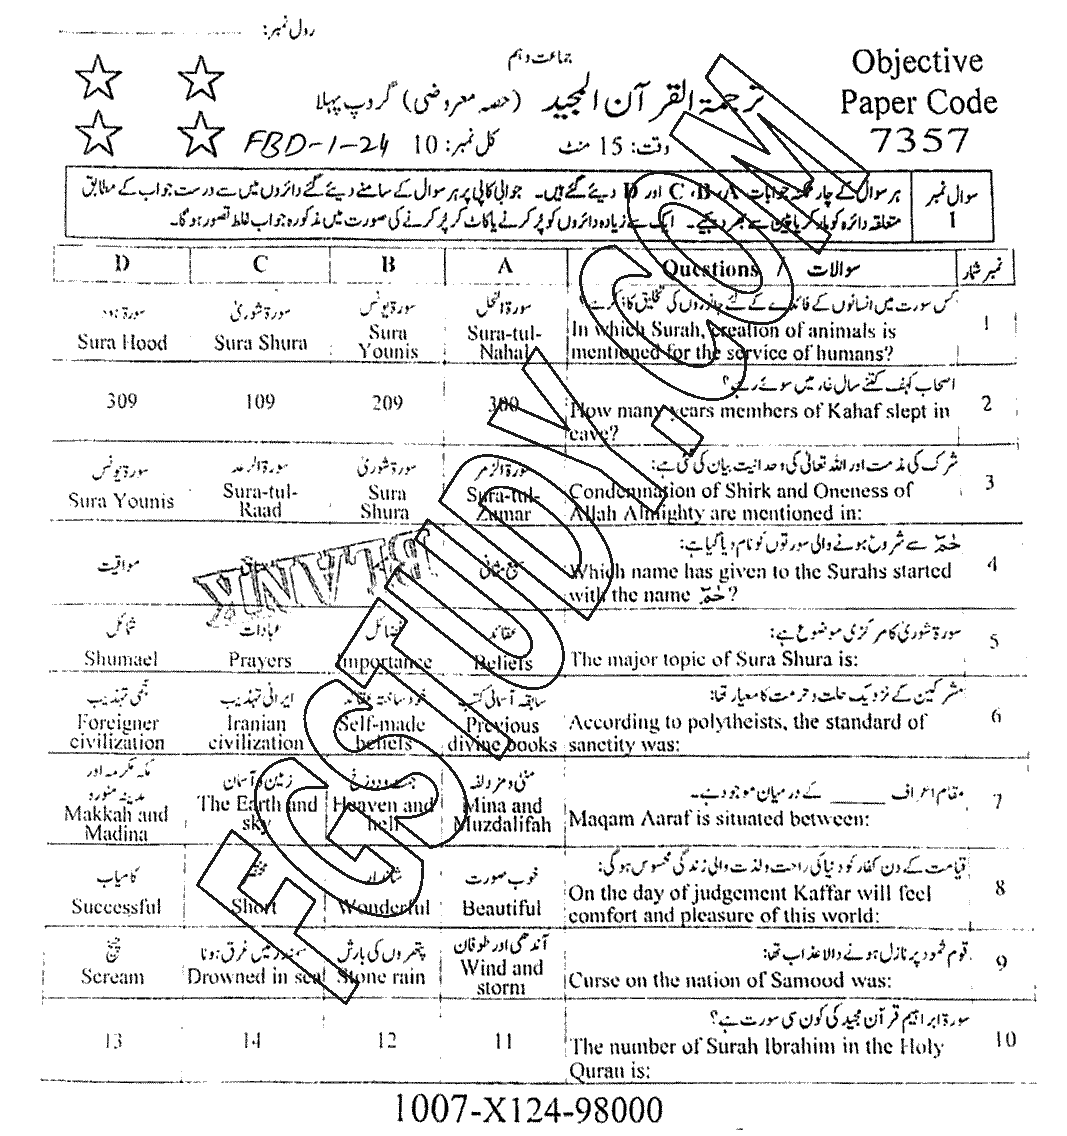 رول نمبر:
جماعت دہم
Objective
Paper Code
7357
ترجمۃ القرآن المجید (حصہ معروضی) گروپ پہلا
وقت: 15 منٹ کل نمبر: 10 FBD-1-24
سوال نمبر 1
ہر سوال کے چار ممکنہ جوابات A، B، C اور D دیئے گئے ہیں۔ جوابی کاپی پر ہر سوال کے سامنے دیئے گئے دائروں میں سے درست جواب کے مطابق
متعلقہ دائرہ کو مارکر یا پین سے بھر دیجیے۔ ایک سے زیادہ دائروں کو پُر کرنے یا کاٹ کر پُر کرنے کی صورت میں مذکورہ جواب غلط تصور ہو گا۔
نمبر شمار سوالات / Questions A B C D
1 کس سورت میں انسانوں کے فائدے کے لئے جانوروں کی تخلیق کا ذکر ہے؟
In which Surah, creation of animals is
mentioned for the service of humans?
سورۃ النحل
Sura-tul-
Nahal
سورۃ یونس
Sura
Younis
سورۃ شوریٰ
Sura Shura
سورۃ ہود
Sura Hood
2 اصحاب کہف کتنے سال غار میں سوئے رہے؟
How many years members of Kahaf slept in
cave?
300 209 109 309
3 شرک کی مذمت اور اللہ تعالیٰ کی وحدانیت بیان کی گئی ہے:
Condemnation of Shirk and Oneness of
Allah Almighty are mentioned in:
سورۃ الزمر
Sura-tul-
Zumar
سورۃ شوریٰ
Sura
Shura
سورۃ الرعد
Sura-tul-
Raad
سورۃ یونس
Sura Younis
4 حٰمٓ سے شروع ہونے والی سورتوں کو نام دیا گیا ہے:
Which name has given to the Surahs started
with the name حٰمٓ ?
سبع مثانی
مواقیت
BLANK
5 سورۃ شوریٰ کا مرکزی موضوع ہے:
The major topic of Sura Shura is:
عقائد
Beliefs
فضائل
Importance
عبادات
Prayers
شمائل
Shumael
6 مشرکین کے نزدیک حلت و حرمت کا معیار تھا:
According to polytheists, the standard of
sanctity was:
سابقہ آسمانی کتب
Previous
divine books
خود ساختہ عقائد
Self-made
beliefs
ایرانی تہذیب
Iranian
civilization
عجمی تہذیب
Foreigner
civilization
7 مقام اعراف ______ کے درمیان موجود ہے۔
Maqam Aaraf is situated between:
منیٰ و مزدلفہ
Mina and
Muzdalifah
جنت و دوزخ
Heaven and
hell
زمین و آسمان
The Earth and
sky
مکہ مکرمہ اور
مدینہ منورہ
Makkah and
Madina
8 قیامت کے دن کفار کو دنیا کی راحت و لذت والی زندگی محسوس ہو گی:
On the day of judgement Kaffar will feel
comfort and pleasure of this world:
خوب صورت
Beautiful
شاندار
Wonderful
مختصر
Short
کامیاب
Successful
9 قوم ثمود پر نازل ہونے والا عذاب تھا:
Curse on the nation of Samood was:
آندھی اور طوفان
Wind and
storm
پتھروں کی بارش
Stone rain
سمندر میں غرق ہونا
Drowned in sea
چیخ
Scream
10 سورۃ ابراہیم قرآن مجید کی کون سی سورت ہے؟
The number of Surah Ibrahim in the Holy
Quran is:
11 12 14 13
1007-X124-98000
FGSTUDY.COM